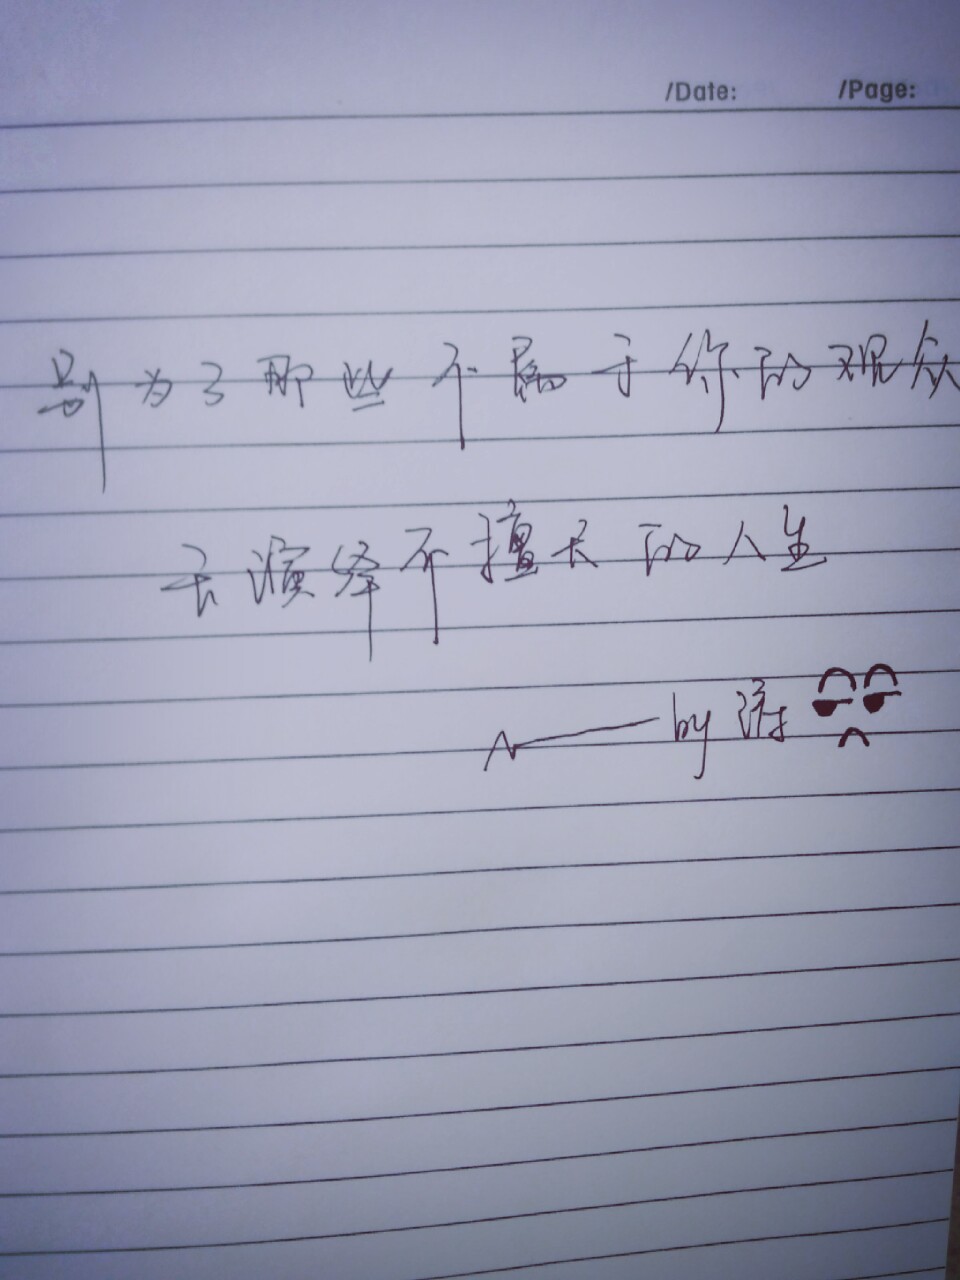 /Date: /Page:
别为了那些不属于你的观众
去演绎不擅长的人生
by